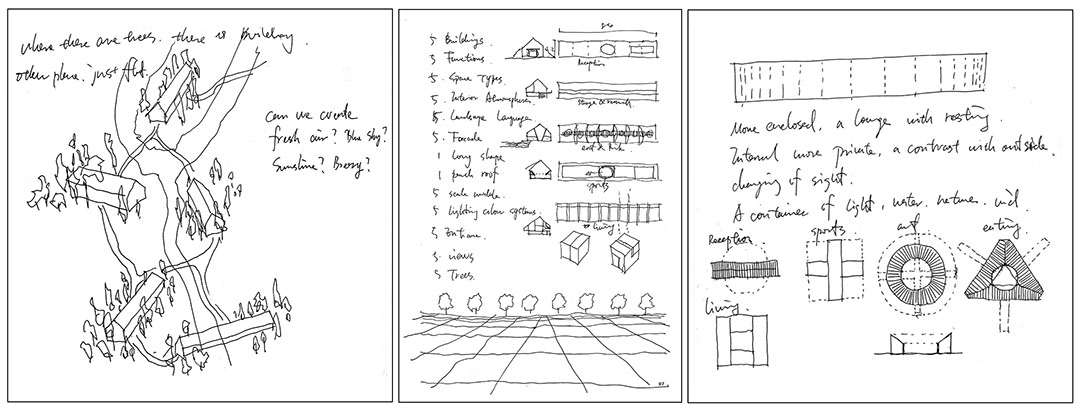 where there are trees. there is building.
other place. just flat.
can we create
fresh air? Blue sky?
Sunshine? Breezy?
5 Buildings.
5 Functions
5. Space Types.
5. Interior Atmospheres.
5. Landscape Language.
5. Facade
1 long shape
1 pitch roof
5 scale
5 lighting colour systems.
5 Entrance.
5. views
5 Trees.
Reception
sports
living
More enclosed, a lounge with resting.
Internal more private, a contrast with outside.
changing of sight.
A container of light, water. nature. wind.
Reception
sports
art
eating
living.